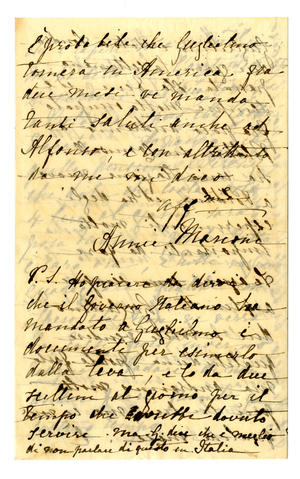 È probabile che Guglielmo
tornerà in America fra
due mesi vi manda
tanti saluti anche ad
Alfonso, e con altrettanti
da me mi dico
Aff
Annie Marconi
P.S. Ho piacere da dirvi
che il Governo Italiano ha
mandato a Guglielmo i
documenti per esimerlo
dalla leva, e lo da due
scellini al giorno per il
tempo che avrebbe dovuto
servire. ma G. dice che è meglio
di non parlare di questo in Italia